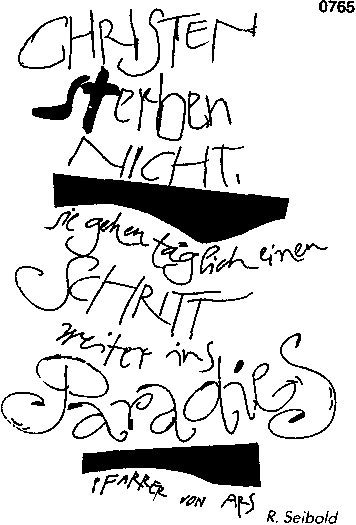 0765
CHRISTEN
sterben
NICHT.
sie gehen täglich einen
SCHRITT
weiter ins
ParadieS
PFARRER VON ARS
R. Seibold